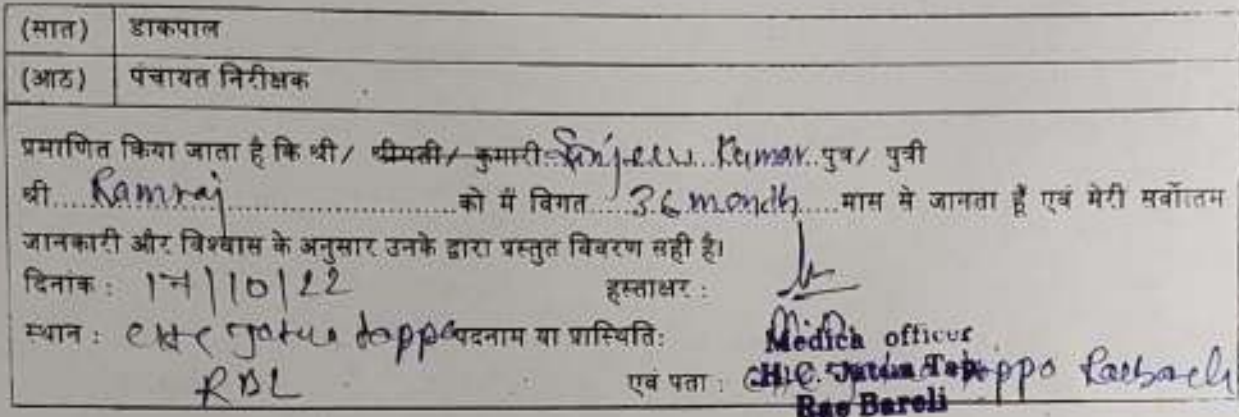 (सात) डाकपाल
(आठ) पंचायत निरीक्षक
प्रमाणित किया जाता है कि श्री/ श्रीमती/ कुमारी Sinjeev Kumar पुत्र/ पुत्री
श्री.....Ramraj..........को मैं विगत.....36 month.....मास से जानता हूँ एवं मेरी सर्वोतम
जानकारी और विश्वास के अनुसार उनके द्वारा प्रस्तुत विवरण सही है।
दिनांक : 17/10/22 हस्ताक्षर :
स्थान : CHC Jatua tappa पदनाम या प्रास्थिति: Medical officer
RBL एवं पता : C.H.C. Jatua Tappo Raebareli
Rae Bareli